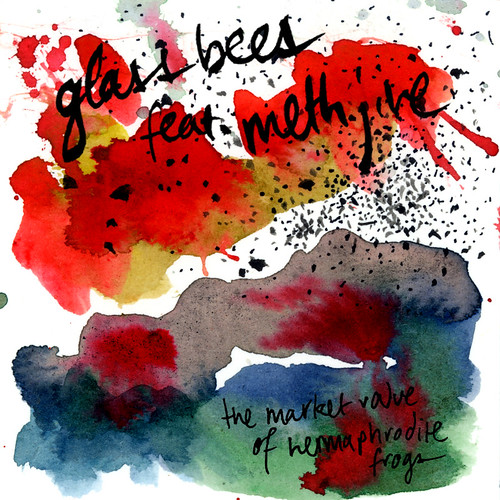 glass bees
feat meth jive
the market value
of hermaphrodite
frogs